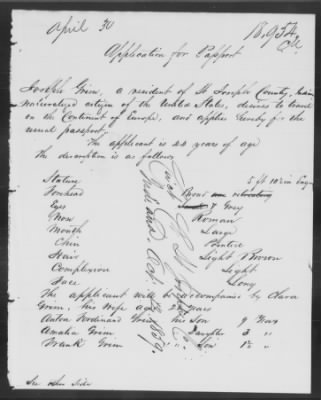 April 30
Application for Passport
Joseph Grim, a resident of St Joseph County, Indiana
naturalized citizen of the United States, desires to travel
on the Continent of Europe, and applies hereby for the
usual passport.
The applicant is 28 years of age
The description is as follows
Stature 5 ft 10 1/2 in Eng
Forehead Broad
Eyes Grey
Nose Roman
Mouth Large
Chin
Hair Light Brown
Complexion Light
Face Long
The applicant will be accompanied by Clara
Grim, his wife age years
Anton Ferdinand Grim, his Son 9 Years
Amalia Grim " Daughter 3 "
Frank Grim " Son 1 1/2 "
See other Side